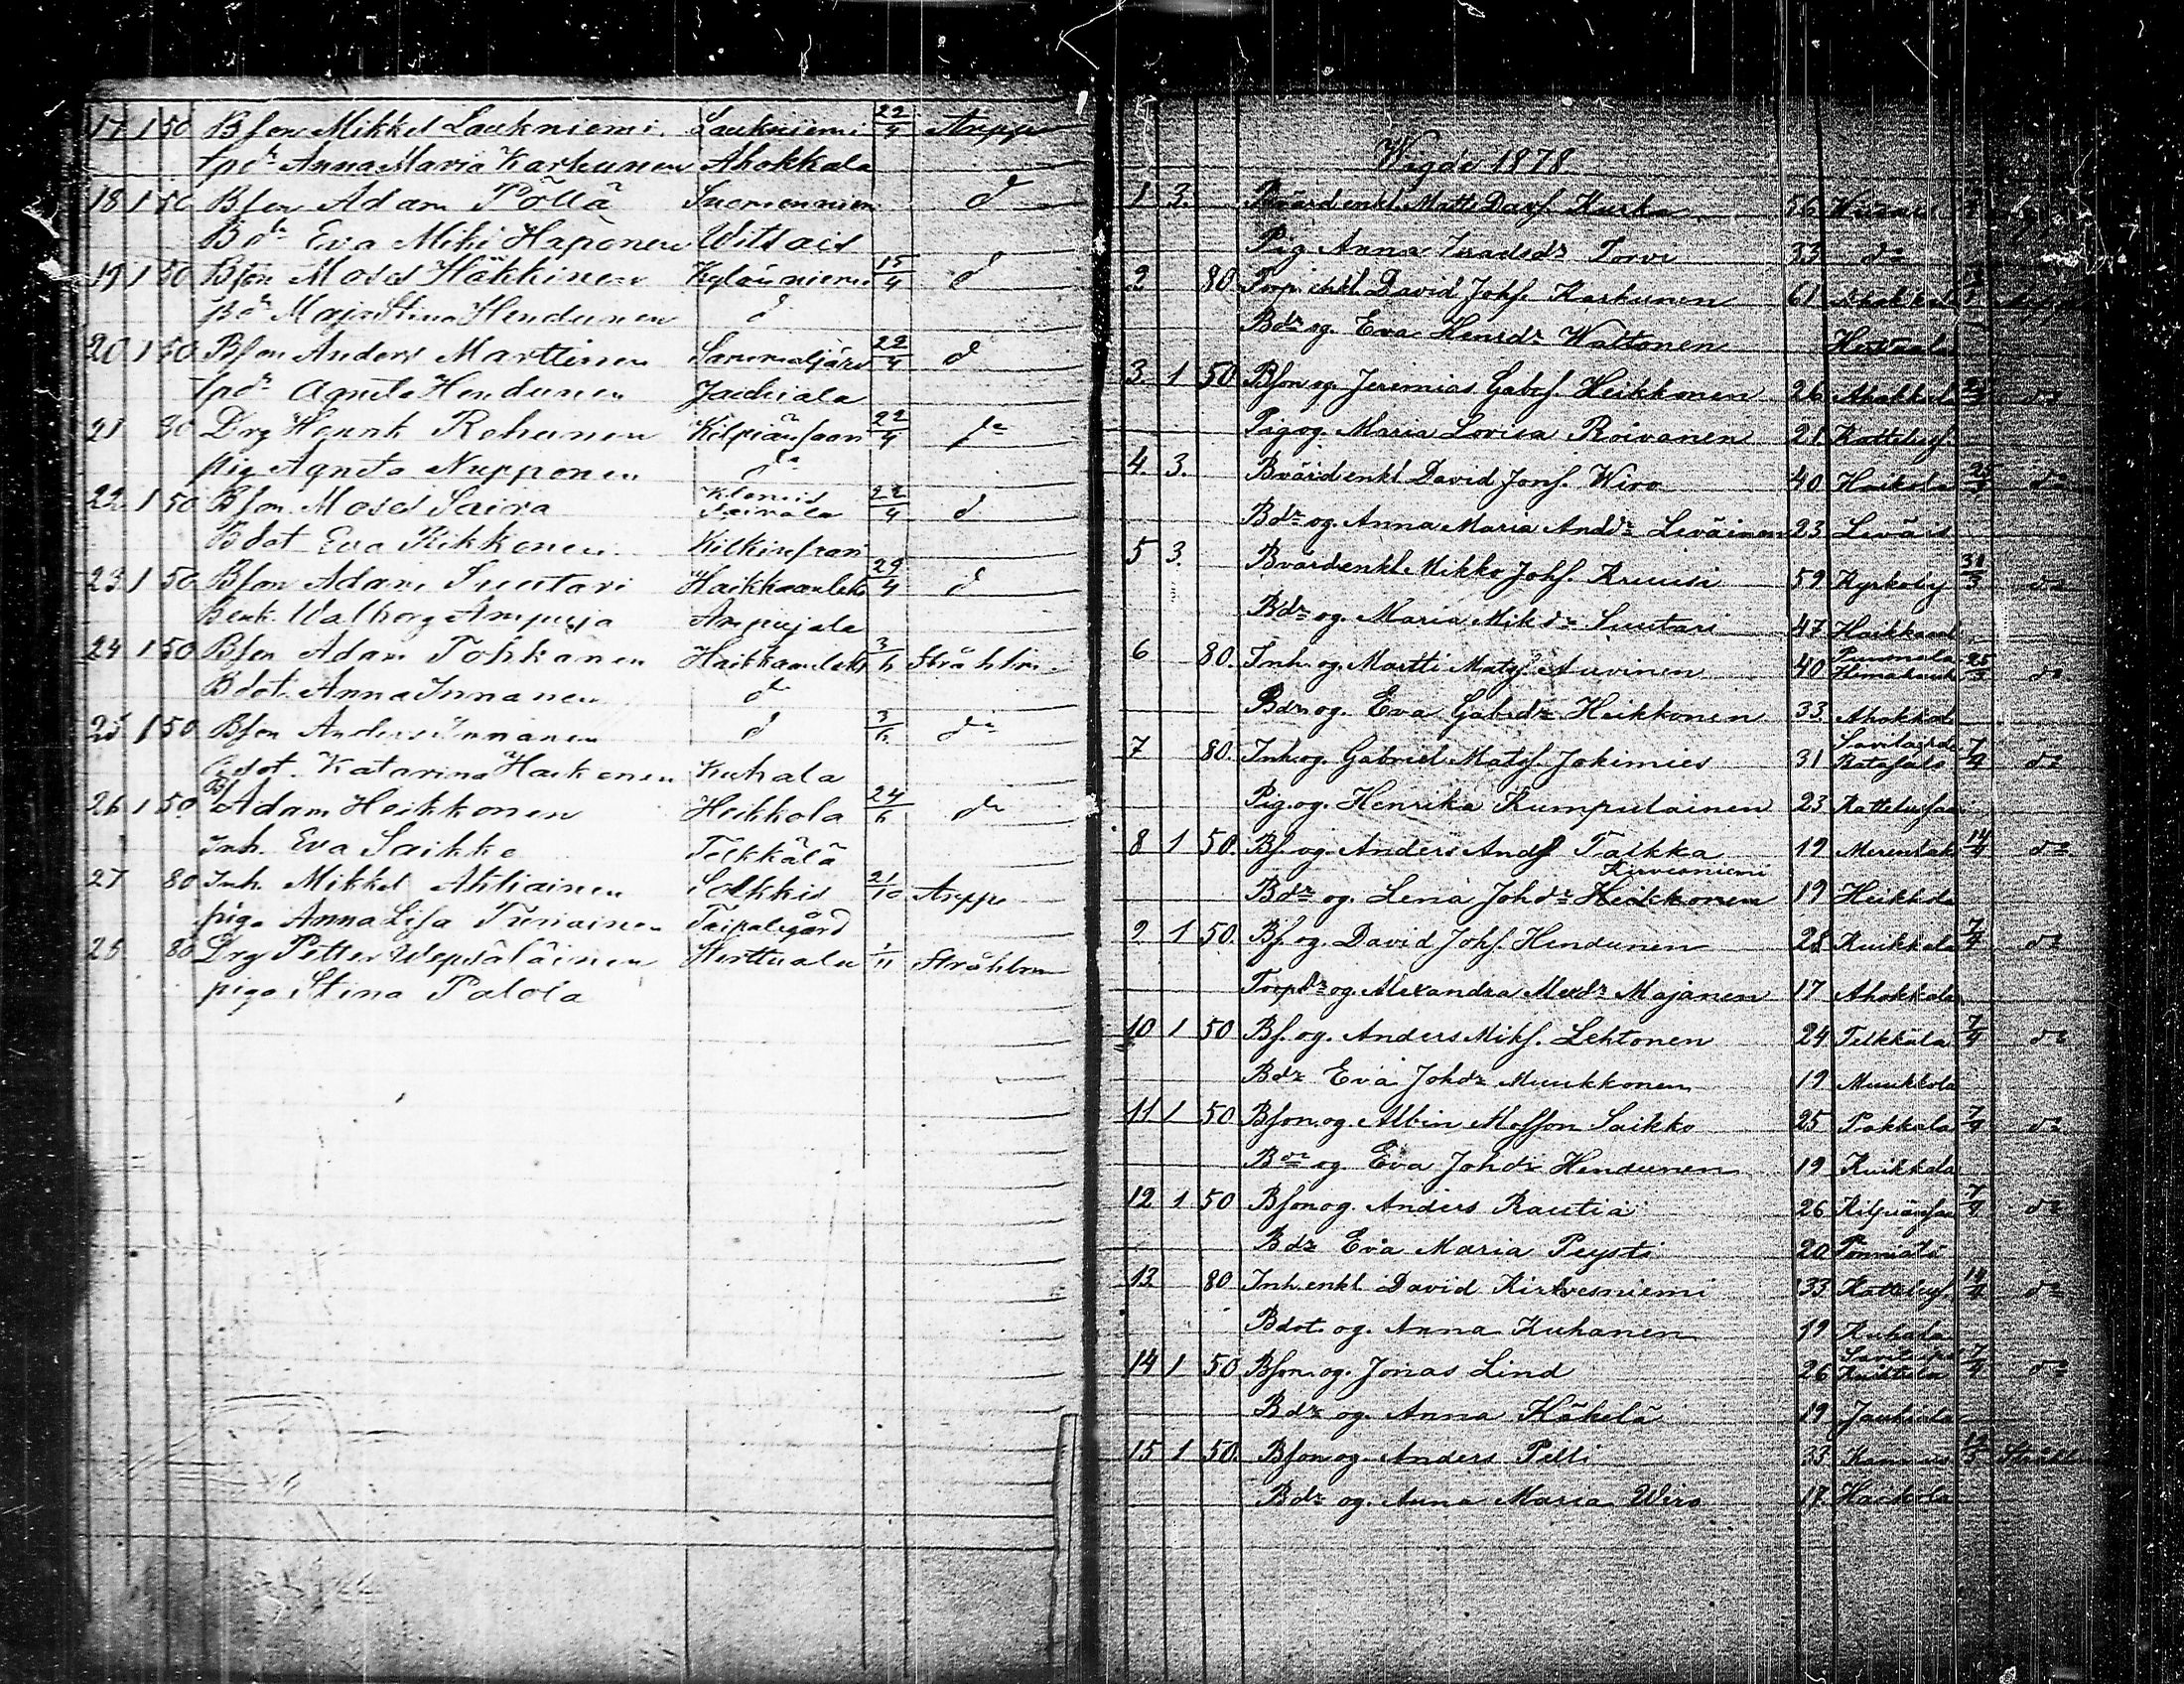 17 1 50 Bson Mikkel Laukniemi. Laukniemi 22/4 Arppe
tpdr Anna Maria Karhunen Ahokkala
18 1 50 Bson Adam Pöllä Suomenniem d
Bdr Eva Miki Haponen Wittais
19 1 50 Bson Moses Häkkinen Kyläniemi 15/4 d
Bdr Maja Stina Hendunen d
20 1 50 Bson Anders Marttinen 22/4 d
tpdr Agneta Hendunen Jauhiala
21 80 Drg Henrik Rehunen Kilpiänsaari 22/4 do
pig Agneta Nupponen do
22 1 50 Bson Moses Saira Klemis Sairala 22/4 d
Bdot Eva Rikkonen
23 1 50 Bson Adam Suutari Haikkaanlaht 29/4 d
Benk. Walborg Ampuja Ampujala
24 1 50 Bson Adam Tohkanen Haikkaanlaht 3/6 Ståhlbr.
Bdot Anna Innanen do
25 1 50 Bson Anders Innanen d 3/6 do
Bdot. Katarina Haikonen Kuhala
26 1 50 Bs Adam Heikkonen Heikkola 24/6 do
Inh. Eva Saikko Telkkälä
27 80 Inh. Mikkel Ahtiainen Solkkis 21/10 Arppe
piga Anna Lisa Turiainen Taipalegård
28 80 Drg Petter Wepsäläinen Herttuala 1/11 Ståhlbrm
piga Stina Palola
Wigde 1878
1 3. Bvärd enkl. Matts Davs. Kurka 56
Pig Anna Isaksdr Torvi 33 do
2 80 Torp. enkl. David Johs. Karhunen 61 Ahokkal
Bdr og. Eva Hensdr Waltonen
3. 1 50 Bson og. Jeremias Gabrs. Heikkonen 26 Ahokkala do
Pig og. Maria Lovisa Roivanen 21 Kattelus.
4. 3. Bvärd enkl David Jons. Wiro 40 Haikola 25/3 do
Bdr og. Anna Maria Anddr Leväinen 23 Leväis
5 3. Bvärd enkl. Mikko Johs. Kruusi 59 Kyrkoby 31/3 do
Bdr og. Maria Mikdr Suutari 47 Haikkaanl
6 80. Inh. og. Martti Mats. Auvinen 40 Puumala 25/3 do
Bdr og. Eva Gabrdr Heikkonen 33. Ahokkal
7 80. Inh. og. Gabriel Mats. Jokimies 31 Ratasalo 7/4 do
Pig. og. Henrika Kumpulainen 23 Kattelussaa
8 1 50. Bs. og. Anders Ands Talkka 19 Merenlaks 14/4 do
Kirvesniemi
Bdr og. Lena Johdr Heikkonen 19 Heikkola
9. 1 50. Bs. og. David Johs. Hendunen 28 Kuikkala 7/4 do
Torpdr og. Alexandra Alexdr Majanen 17 Ahokkala
10 1 50 Bs. og. Anders Miks. Lehtonen 24 Telkkälä 7/4 do
Bdr Eva Johdr Muukkonen 19 Muukkola
11 1 50 Bson og. Albin Mosson Saikko 25 Pakkala 7/4 do
Bdr og Eva Johdr Hendunen 19 Kuikkala
12 1 50 Bson og. Anders Rautia 26 Kilpiänsaa 7/4 do
Bdr Eva Maria Peysti 20 Pönniälä
13 80 Inh. enkl. David Kirvesniemi 33 Kattelus. 14/4 do
Bdot og. Anna Kuhanen 19 Kuhala
14 1 50 Bson og. Jonas Lind 26 7/4 do
Bdr og. Anna Käkelä 19 Jauhiala
15 1 50. Bson og. Anders Pelli 33
Bdr og. Anna Maria Wiro 17 Haikola